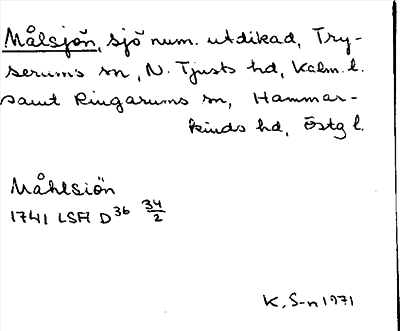 Målsjön, sjö num. utdikad, Try-
serums sn, N. Tjusts hd, Kalm. l.
samt Ringarums sn, Hammar-
kinds hd, Östg l.
Måhlsiön
1741 LSA D 36 34/2
K. S-n 1971